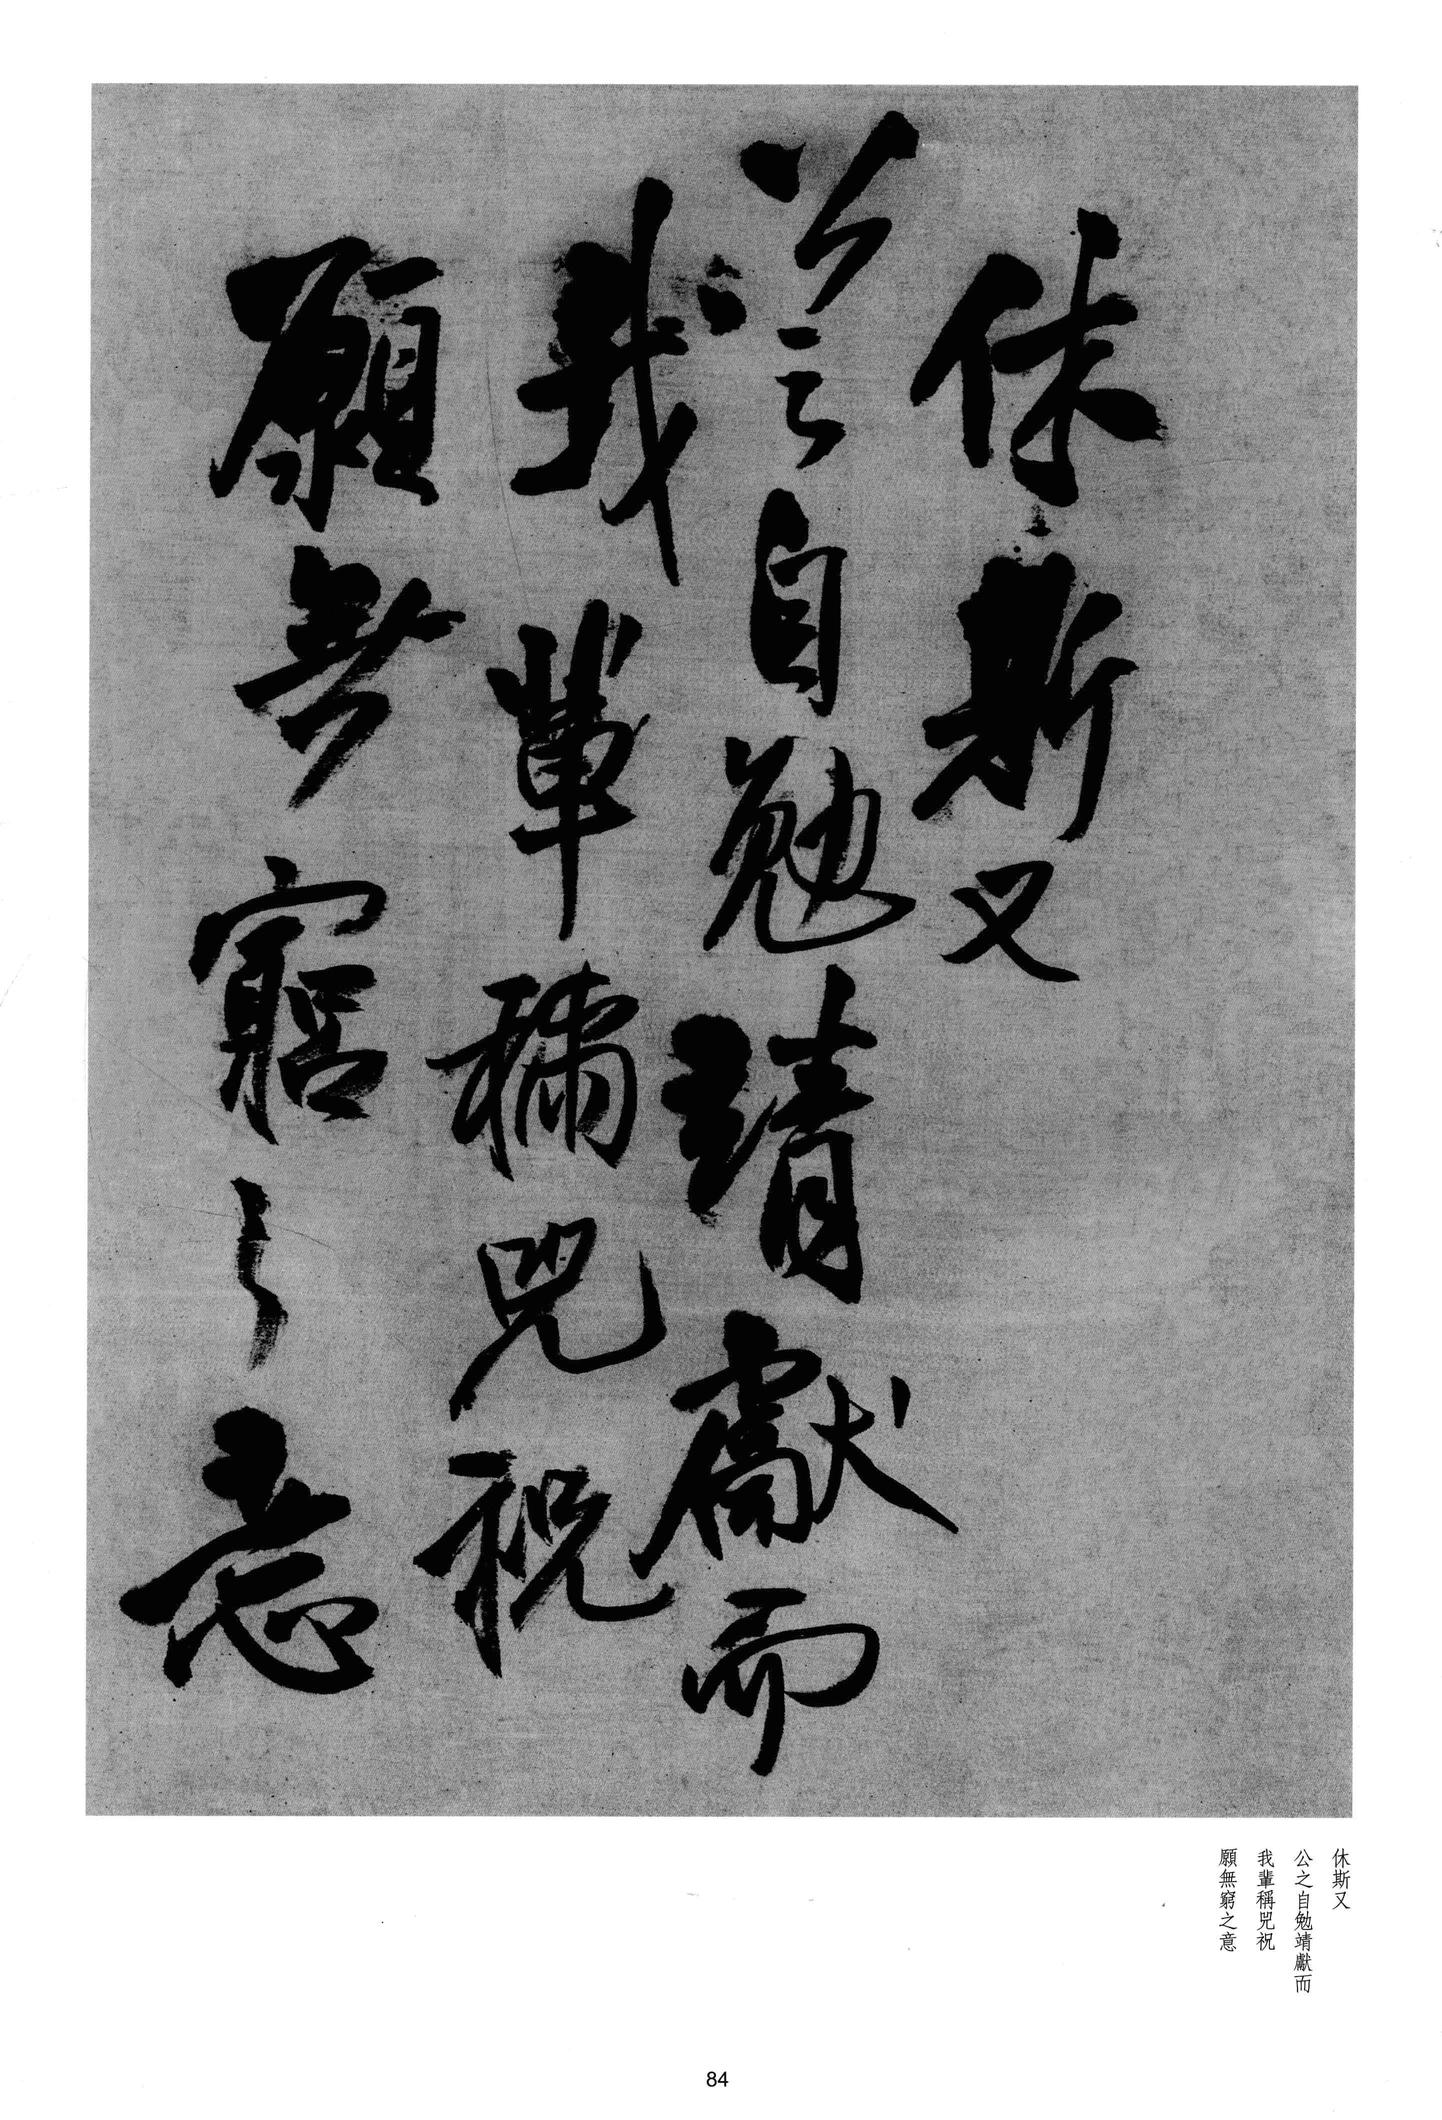 休斯又
公之自勉靖獻而
我輩稱兕祝
願無窮之意
休斯又
公之自勉靖獻而
我輩稱兕祝
願無窮之意
84